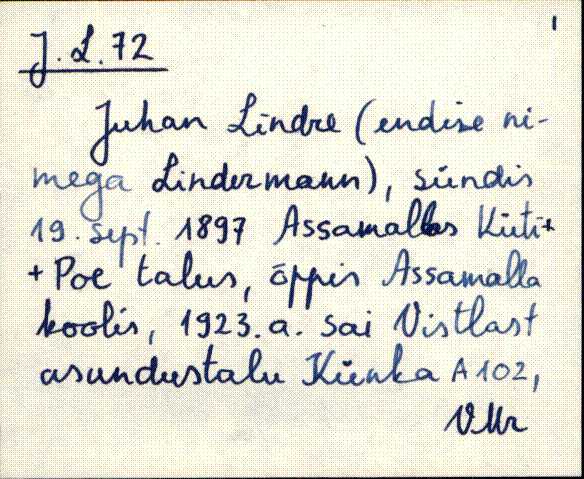 1
J. L. 72
Juhan Lindre (endise ni-
mega Lindermann), sündis
19. sept. 1897 Assamallas Küti+
+ Poe talus, õppis Assamalla
koolis, 1923. a. sai Vistlast
asundustalu Künka A 102,
VMr